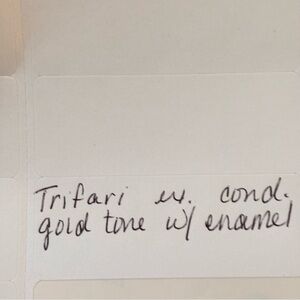 Trifari ex. cond.
gold tone w/ enamel